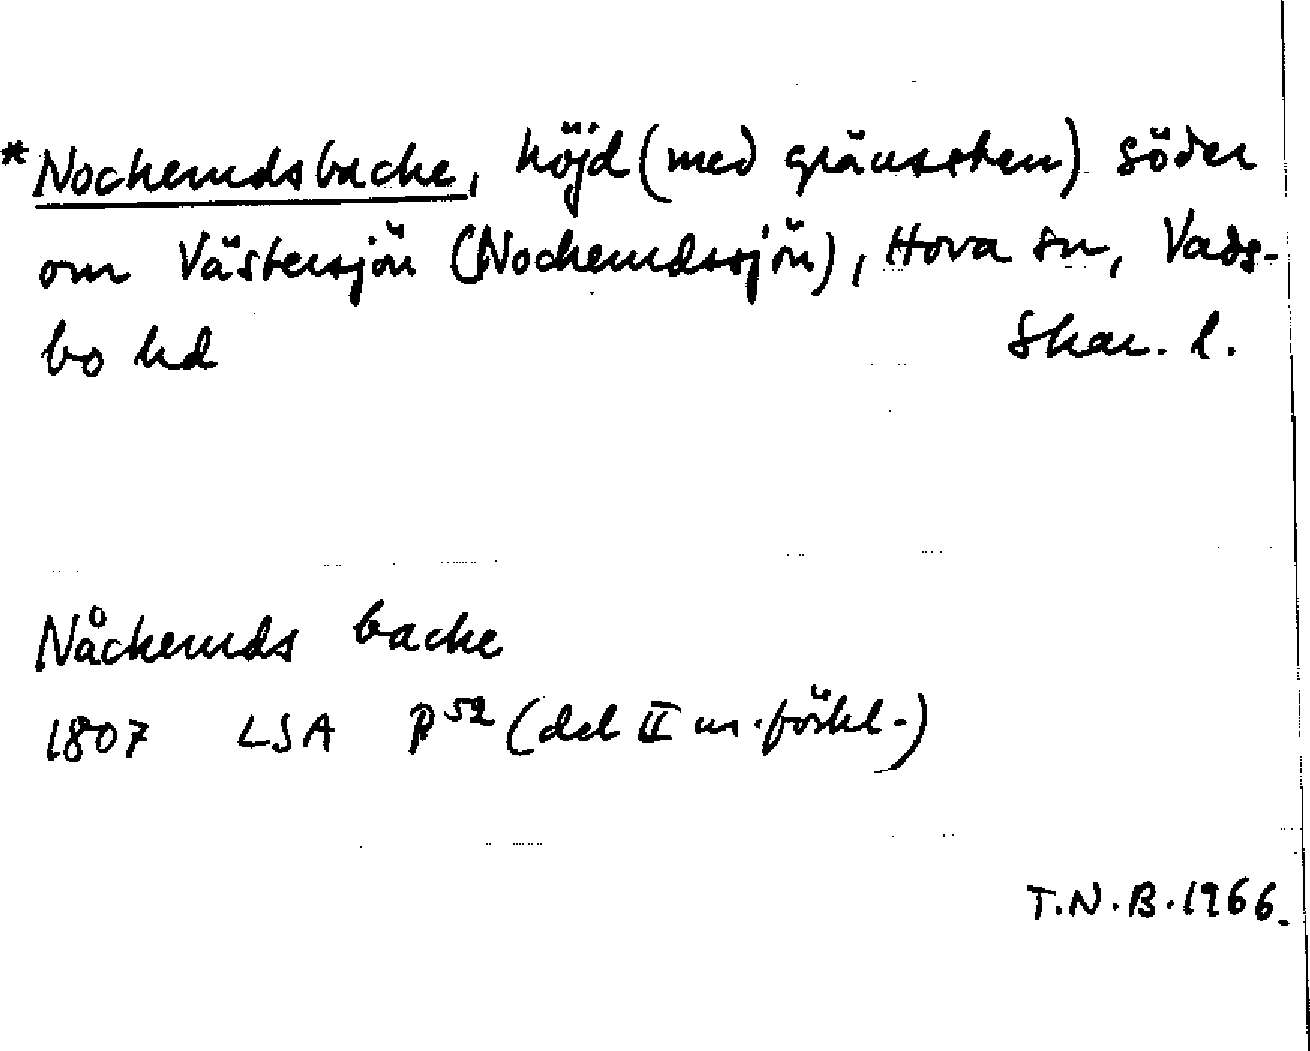 *Nockerudsbacke, höjd (med gränssten) söder
om Västersjön (Nockerudssjön), Hova sn, Vads-
bo hd Skar. l.
Nåckeruds backe
1807 LSA P52 (del II m. förkl.)
T.N.B. 1966.